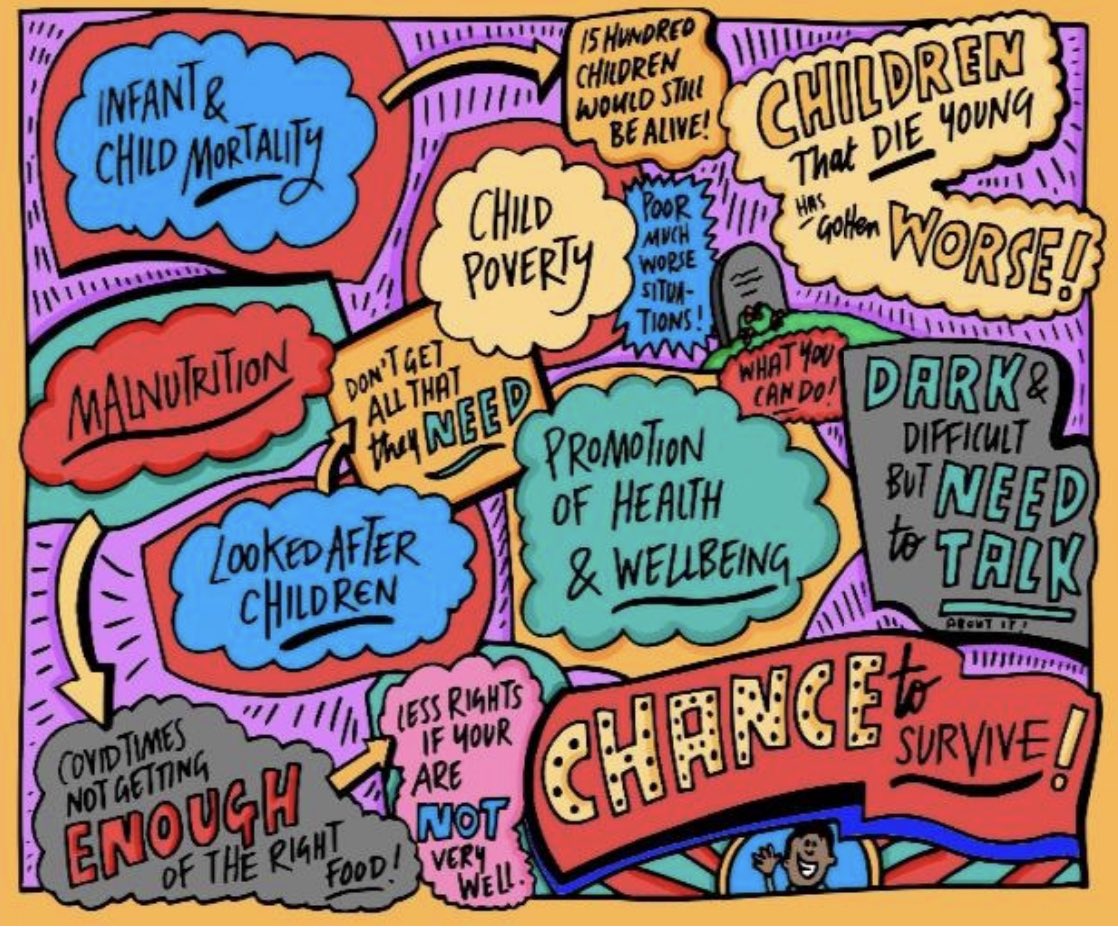 INFANT &
CHILD MORTALITY
15 HUNDRED
CHILDREN
WOULD STILL
BE ALIVE!
CHILDREN
That DIE YOUNG
HAS
GOTTEN WORSE!
CHILD
POVERTY
POOR
MUCH
WORSE
SITUA-
TIONS!
MALNUTRITION
DON'T GET
ALL THAT
they NEED
WHAT YOU
CAN DO!
DARK &
DIFFICULT
BUT NEED
to TALK
ABOUT IT!
PROMOTION
OF HEALTH
& WELLBEING
LOOKED AFTER
CHILDREN
COVID TIMES
NOT GETTING
ENOUGH
OF THE RIGHT
FOOD!
LESS RIGHTS
IF YOUR
ARE
NOT
VERY
WELL.
CHANCE to
SURVIVE!